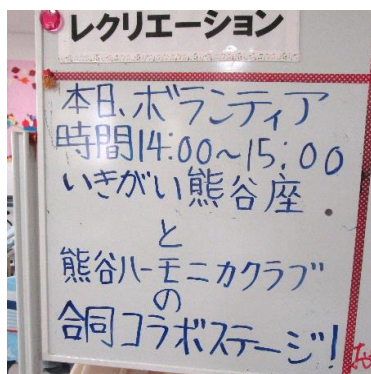 レクリエーション
本日、ボランティア
時間14:00~15:00
いきがい熊谷座
と
熊谷ハーモニカクラブ
の
合同コラボステージ!